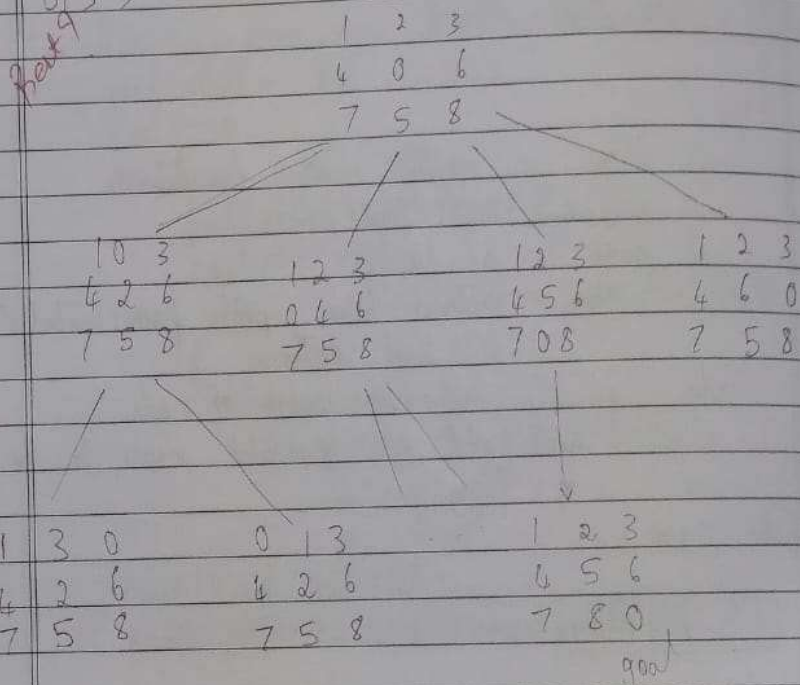 1 2 3
4 0 6
7 5 8
1 0 3
4 2 6
7 5 8
1 2 3
0 4 6
7 5 8
1 2 3
4 5 6
7 0 8
1 2 3
4 6 0
7 5 8
1 3 0
4 2 6
7 5 8
0 1 3
4 2 6
7 5 8
1 2 3
4 5 6
7 8 0
goal